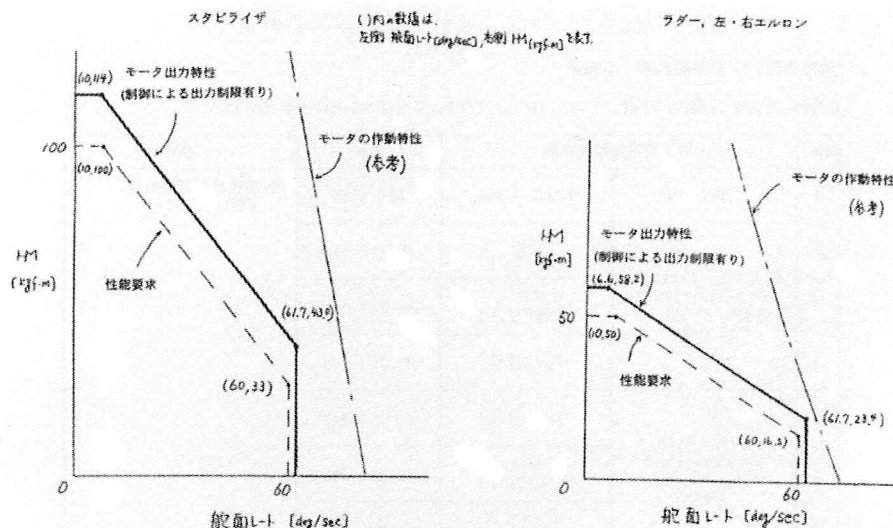 スタビライザ
( )内の数値は、
左側 舵面レート[deg/sec], 右側 HM[kgf-m]を表す.
ラダー, 左・右エルロン
(10,114)
モータ出力特性
(制御による出力制限有り)
100
(10,100)
モータの作動特性
(参考)
HM
[kgf-m]
性能要求
(61.7,43.0)
(60,33)
0
60
舵面レート [deg/sec]
モータの作動特性
(参考)
HM
[kgf-m]
モータ出力特性
(制御による出力制限有り)
(6.6,58.2)
50
(10,50)
性能要求
(61.7,23.4)
(60,16.5)
0
60
舵面レート [deg/sec]